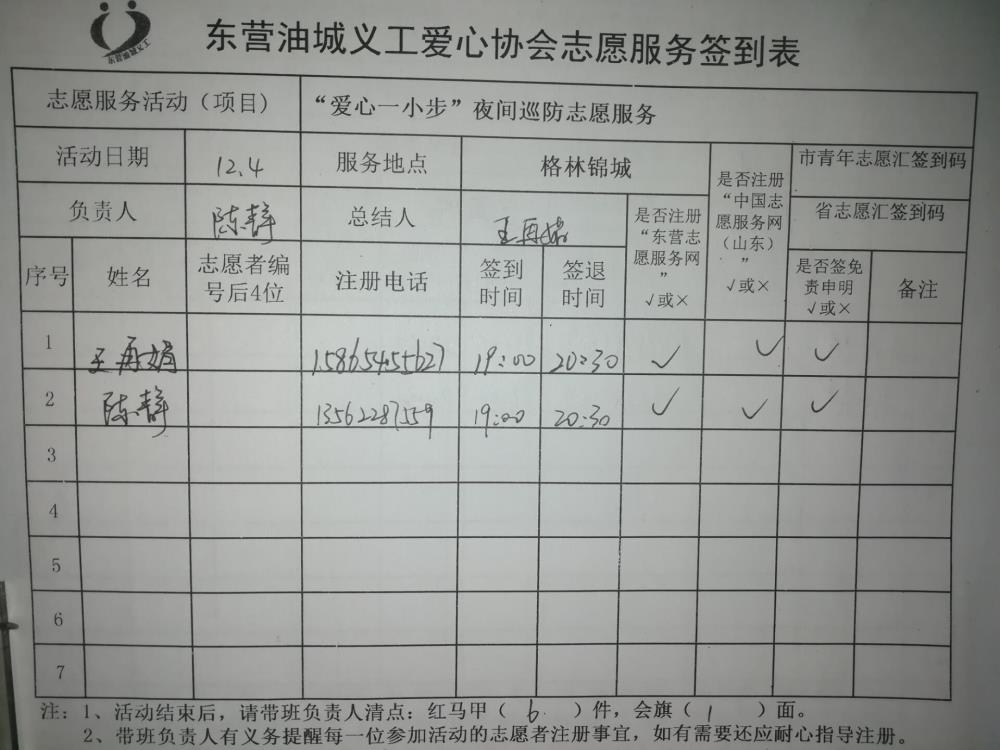 东营油城义工爱心协会志愿服务签到表
志愿服务活动（项目） “爱心一小步”夜间巡防志愿服务
活动日期 12.4 服务地点 格林锦城 是否注册“中国志愿服务网（山东）” √或× 市青年志愿汇签到码
负责人 陈静 总结人 王再娟 是否注册“东营志愿服务网” √或× 省志愿汇签到码
序号 姓名 志愿者编号后4位 注册电话 签到时间 签退时间 是否签免责申明 √或× 备注
1 王再娟 15865455627 19:00 20:30 ✓ ✓ ✓
2 陈静 13562287559 19:00 20:30 ✓ ✓ ✓
3
4
5
6
7
注：1、活动结束后，请带班负责人清点：红马甲（6）件，会旗（1）面。
2、带班负责人有义务提醒每一位参加活动的志愿者注册事宜，如有需要还应耐心指导注册。